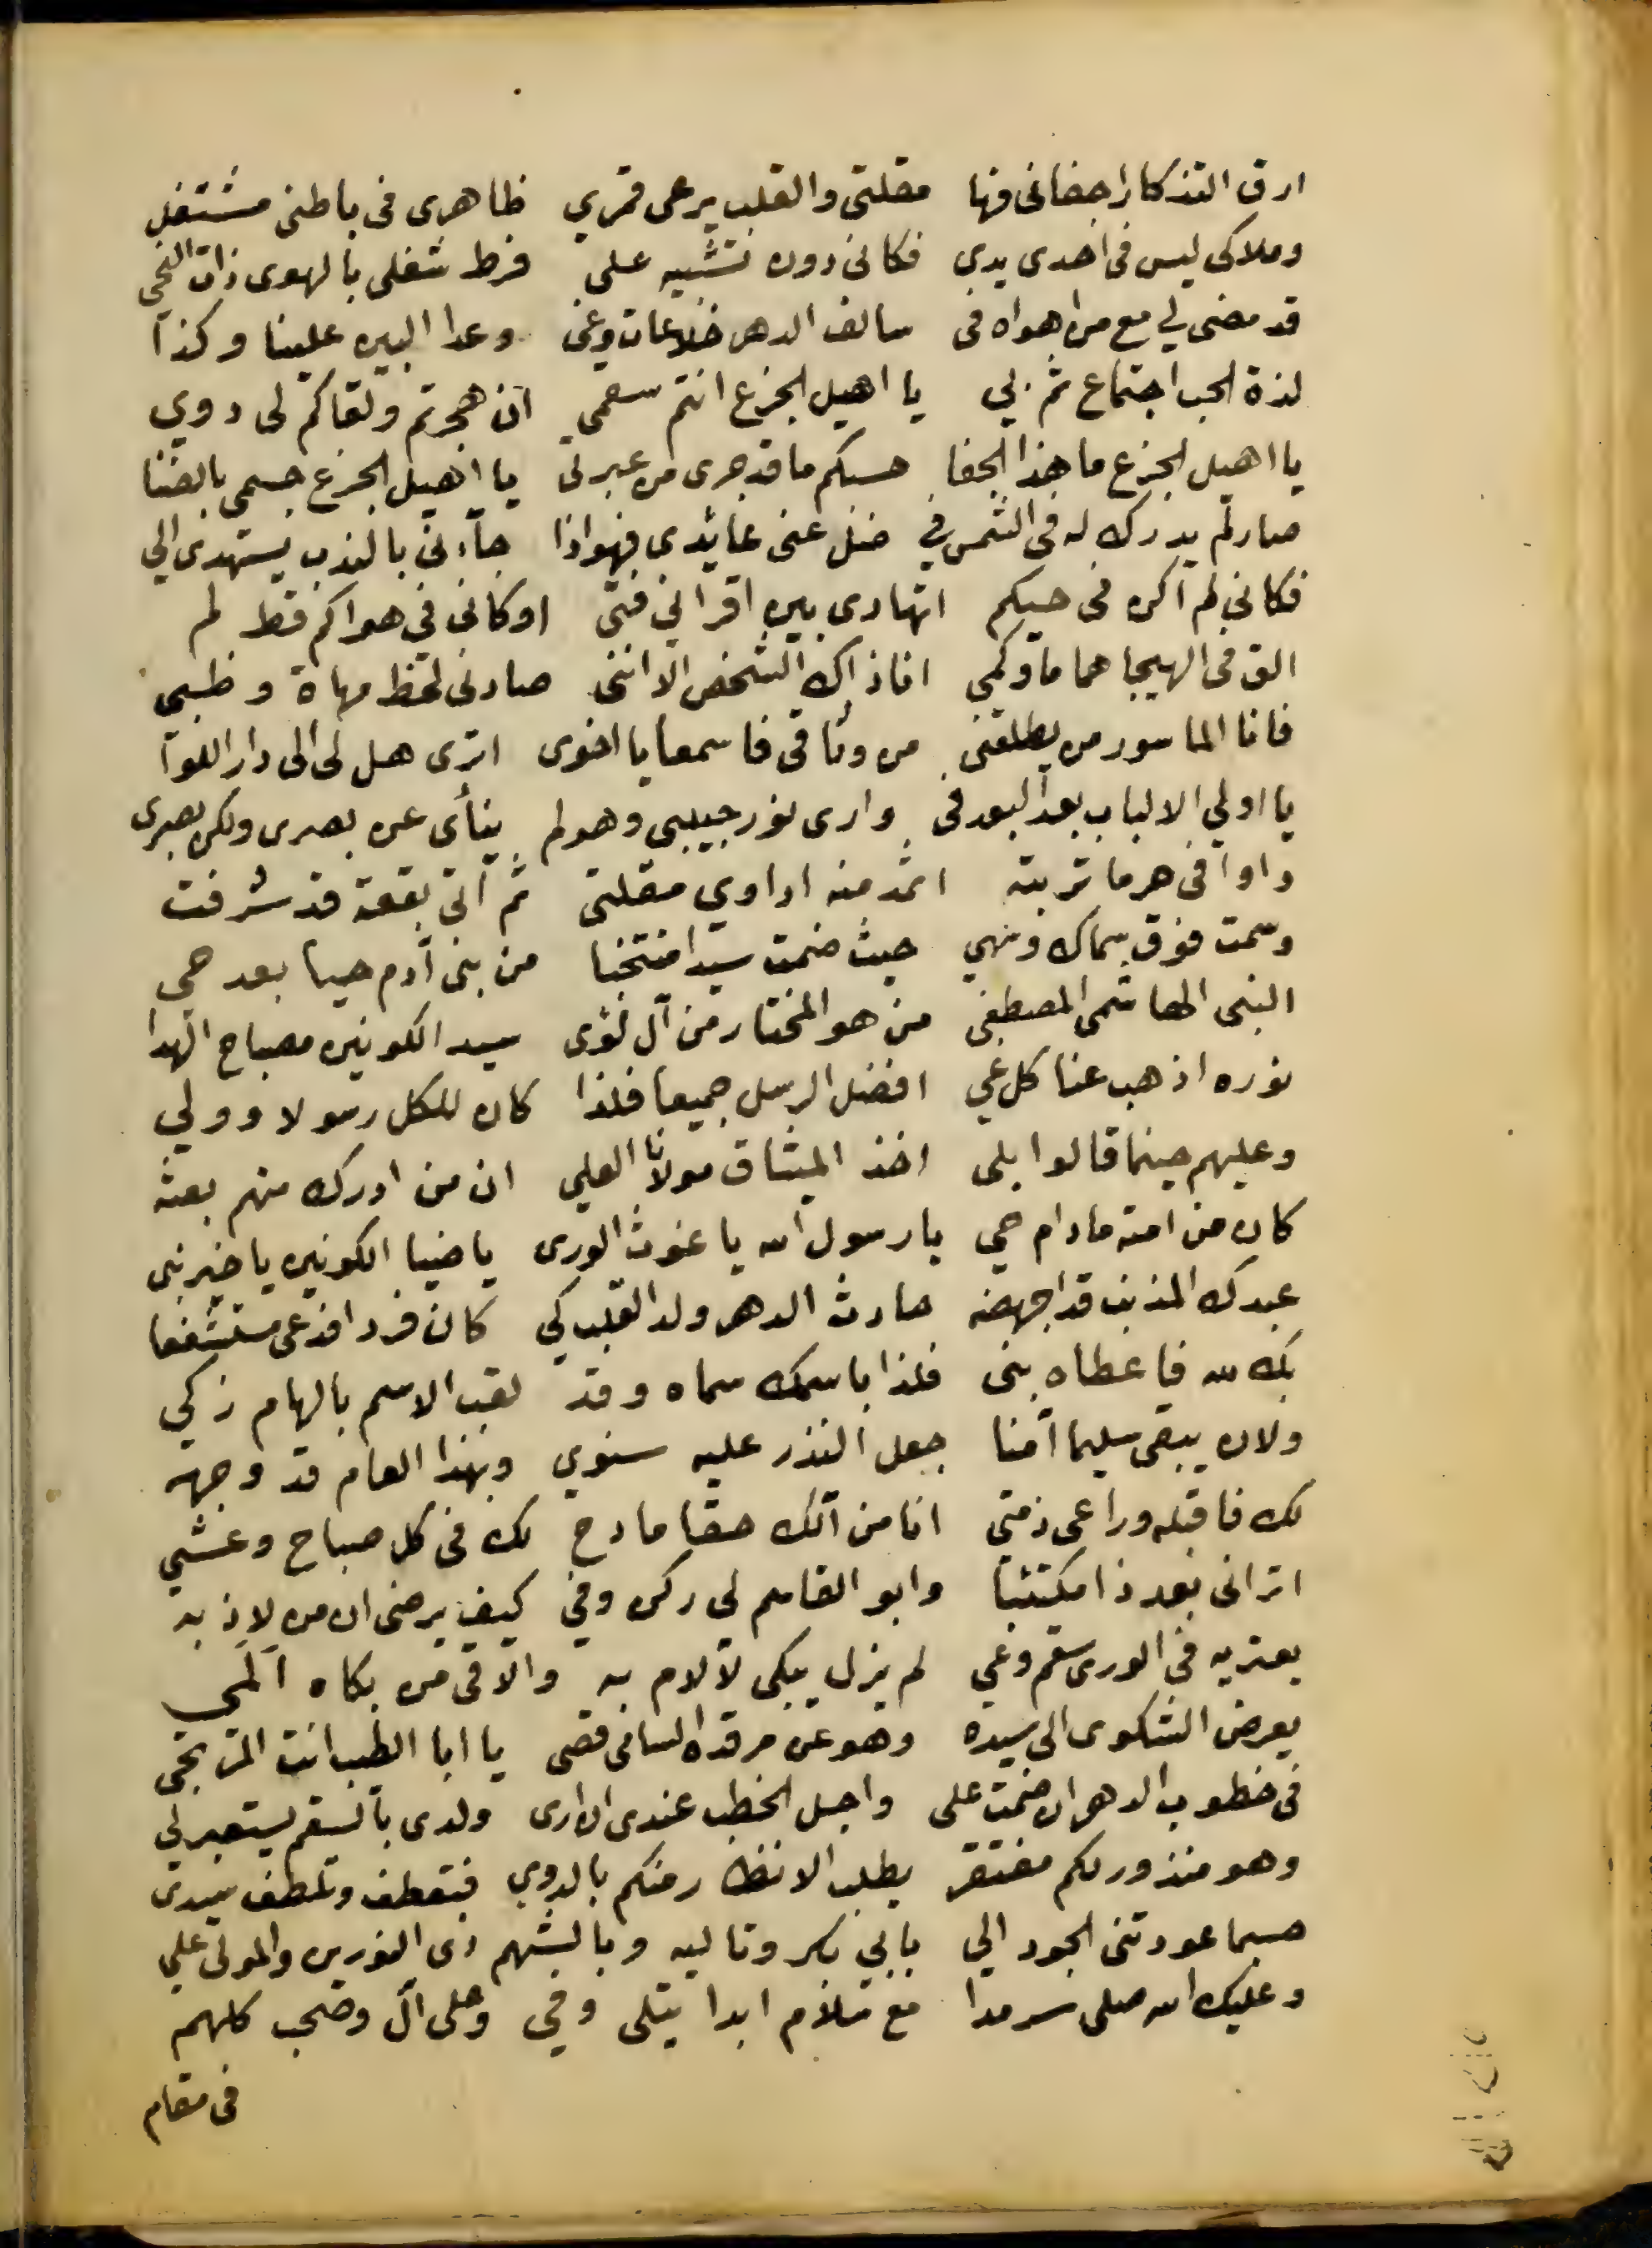 ارق التذكار اجفانى فها مقلتى والقلب يرعى قمري ظاهرى فى باطنى مشتغل
وملاكى ليس فى احدى يدي فكانى دون تشبيه على فرط شغلى بالهوى ذات
قد مضى لي مع من اهواه فى سالف الدهر خلاعات وغى وعدا البين علينا وكذا
لذة الحب اجتماع ثم لي يا اهيل الجزع انتم سقمي ان هجرتم ولقاكم لى دوي
يا اهيل الجزع ما هذا الجفا حسبكم ما قد جرى من عبرتى يا اهيل الجزع جسمى بالضنا
صار لم يدرك له فى الشمس في ضل عنى عائدى فهو اذا جآءنى بالندب يستهدى الي
فكانى لم اكن فى حبكم اتهادى بين اقرانى فتى او كانى فى هواكم قط لم
الق فى الهيجا هماما وكمي انا ذاك الشخص الا اننى صادنى لحظ مهاة وظبي
فانا الماسور من يطلقنى من وثاقى فاسمعا يا اخوى اترى هل لى الى دار اللوا
يا اولي الالباب بعد البعد فى وارى نور حبيبى وهو لم ينأى عن بصرى ولكن بصرى
داوا فى هرما تربته اثمد منه اداوي مقلتى ثم آتى بقعة قد شرفت
وسمت فوق سماك وسهي حيث ضمت سيدا منتخبا من بنى آدم حيا بعد حي
النبى الهاشمى المصطفى من هو المختار من آل لؤى سيد الكونين مصباح الهدا
نوره اذهب عنا كل غي افضل الرسل جميعا فلذا كان للكل رسولا وولي
وعليهم حينما قالوا بلى اخذ الميثاق مولانا العلي ان من ادرك منهم بعثه
كان من امته مادام حي يا رسول الله يا غوث الورى يا ضيا الكونين يا خير نبى
عبدك المذنب قد اجهضه حادث الدهر ولد القلب كي كان فردا فدعى مستشفعا
بك لله فاعطاه بنى فلذا باسمك سماه وقد لقب الاسم بالهام زكي
ولان يبقى سليما آمنا جعل النذر عليه سنوي وبهذا العام قد وجهه
لك فاقبله وراعى ذمتى انا من آلك حقا مادح لك فى كل صباح وعشي
اترانى بعد ذا مكتئبا وابو القاسم لي ركن وفي كيف يرضى ان من لاذ به
يعتريه فى الورى سقم وغي لم يزل يبكى لآلام به والاقى من بكاه المي
يعرض الشكوى الى سيده وهو عن مرقده السامى قصى يا ابا الطيب انت المرتجى
فى خطوب الدهر ان ضمت على واجل الخطب عندى ان ارى ولدى بالسقم يستعبر لي
وهو منذور لكم مفتقر يطلب الانظار منكم بالدوي فتعطف وتلطف سيدى
حسبما عودتنى الجود الي بابي بكر وتاليه وبالشهم ذى النورين والمولى علي
وعليك الله صلى سرمدا مع سلام ابدا يتلى وفي وعلى آل وصحب كلهم
فى مقام